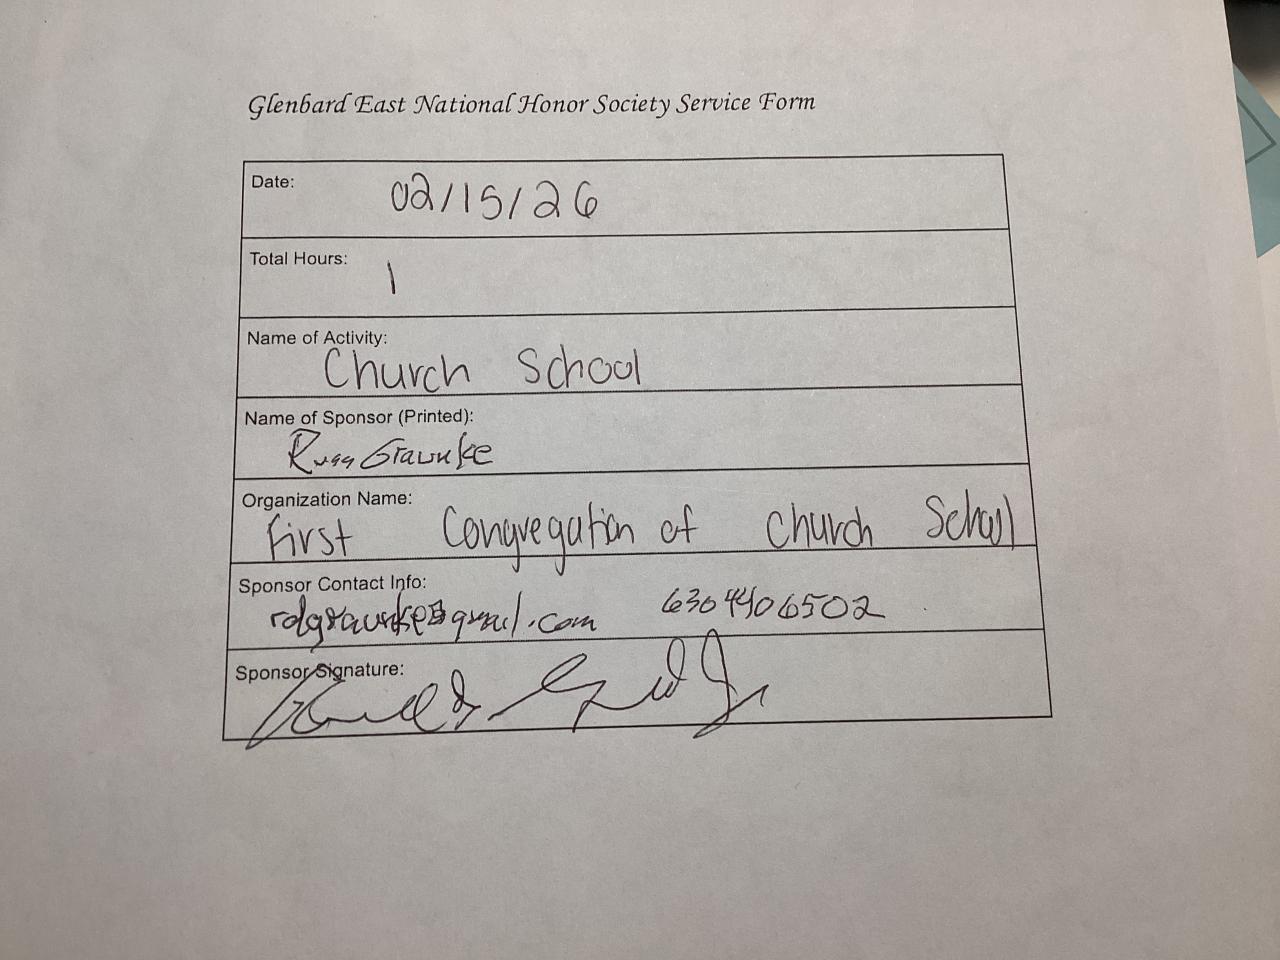 Glenbard East National Honor Society Service Form
Date: 02/15/26
Total Hours: 1
Name of Activity:
Church School
Name of Sponsor (Printed):
Russ Graunke
Organization Name:
First Congregation of Church School
Sponsor Contact Info:
rdgraunke@gmail.com 6304406502
Sponsor Signature: